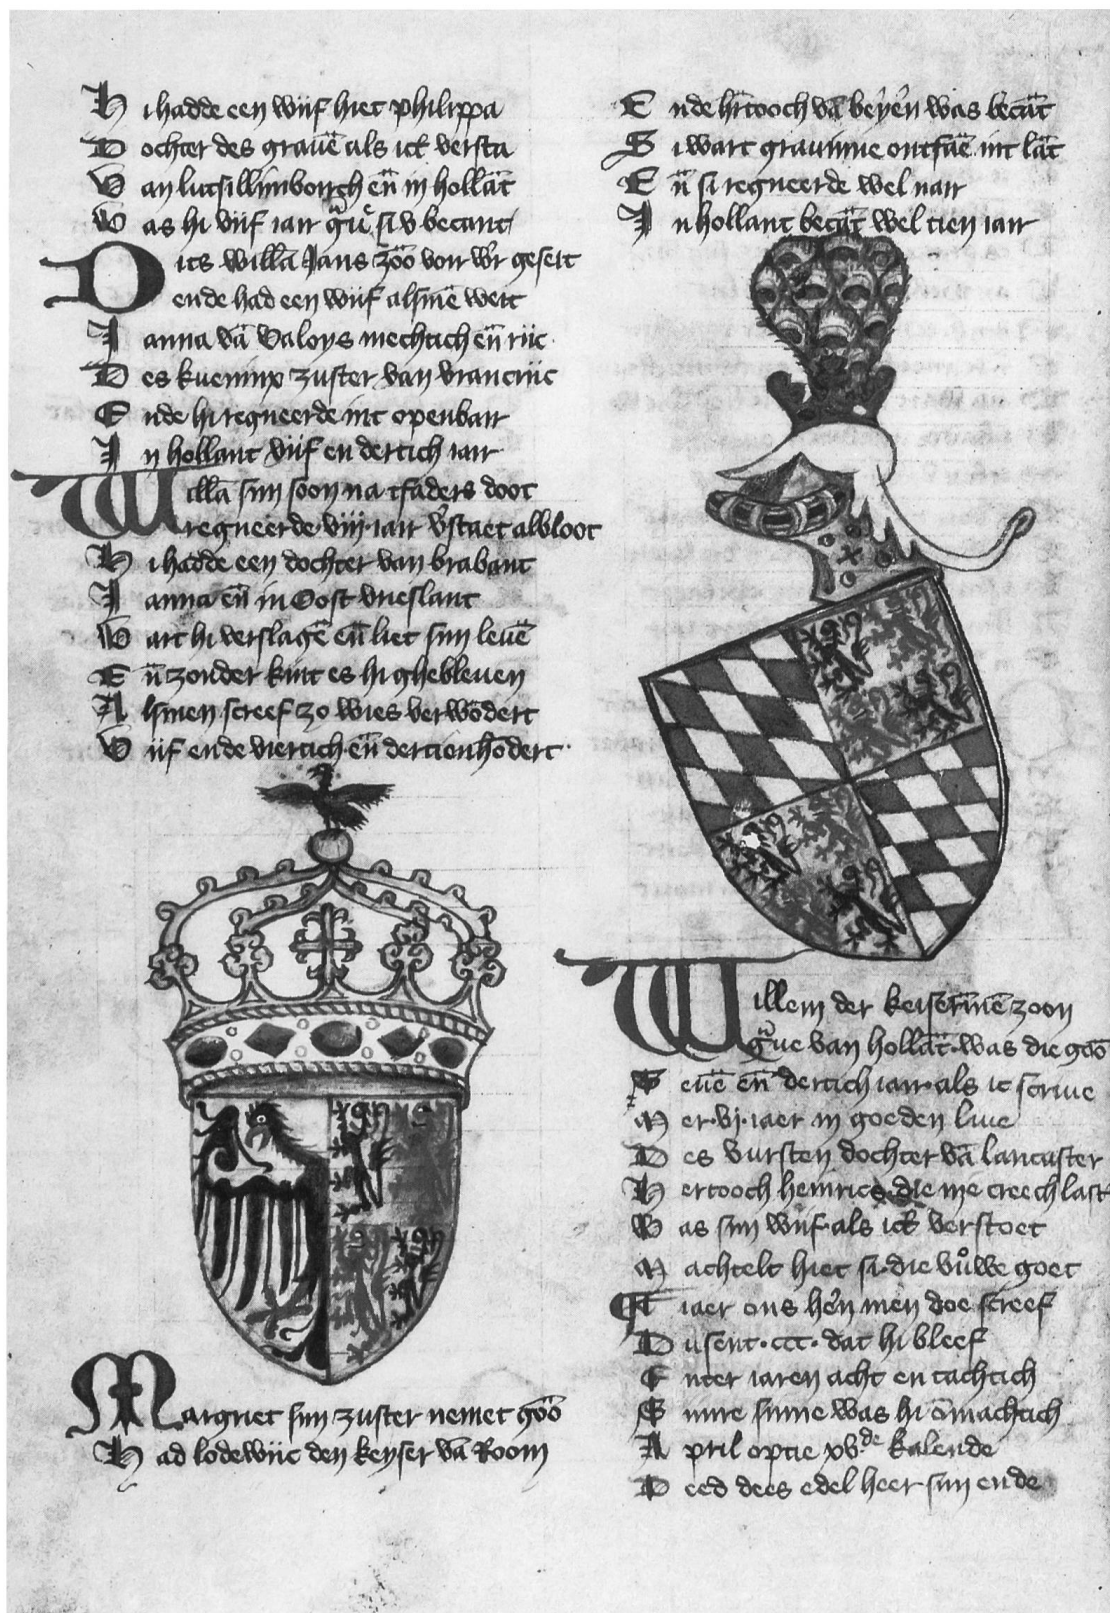 H i hadde een wijf hiet philippa
D ochter des grauē als ick versta
V an lutsillimborrch en̄ in hollāt
W as hi vijf iair gͣue si v becant
Dits willā Jans zoō voir wͬ geseit
ende had een wijf alsmē weit
J anna vā valoys mechtich en̄ rijc
D es kueninx zuster van vrancrijc
E nde hi regneerde int openbair
J n hollant vijf en dertich iair
Willā sijn soon na tsaders doot
regneerde viij iair v̓staet al bloot
H i hadde een dochter van brabant
J anna en̄ in Oost vrieslant
W art hi verslagē en̄ liet sijn leuē
E n̄ zonder kint es hi ghebleuen
A lsmen screef zo wies verwōdert
V ijf ende viertich en̄ dertienhōdert
Margriet sijn zuster nemet goō
H ad lodewijc den keyser vā Room
E nde hr̄tooch vā beyer̄n was becāt
S i wart grauinne ontfaē int lāt
E n̄ si regneerde wel nair
J n hollant becāt wel tien iair
Willem der keiserīnē zoon
gͣue van hollāt was die goō
S euē en̄ dertich iair als ic scriue
M er vj iaer in goeden liue
D es vursten dochter vā lancaster
H ertooch heinrics die nie creech last
W as sijn wijf als ick verstoet
M achtelt hiet si die vrůwe goet
T iaer ons her̄n men doe screef
D usent ccc dat hi bleef
E nter iaren acht en tachtich
S inre sinne was hi ōmachtich
A pril optie xvde kalende
D eed dees edel heer sijn ende